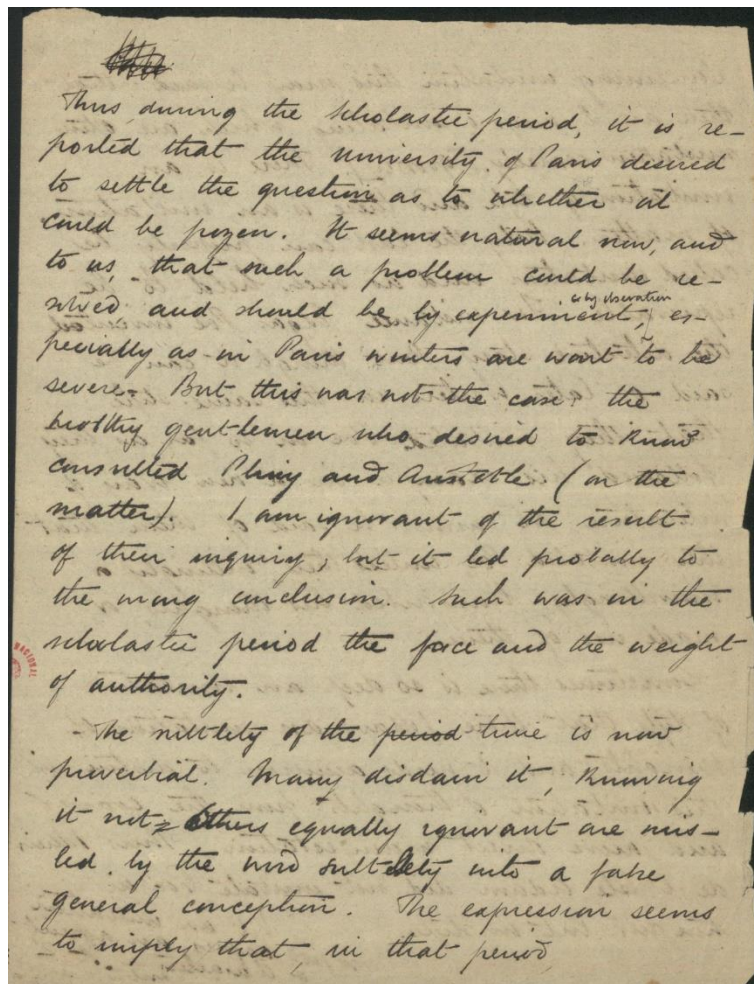 Thus, during the scholastic period, it is re-
ported that the university of Paris desired
to settle the question as to whether oil
could be frozen. It seems natural now, and
to us, that such a problem could be re-
solved and should be by experiment, es-
or by observation
pecially as in Paris winters are wont to be
severe. But this was not the case: the
worthy gentlemen who desired to know
consulted Pliny and Aristotle (on the
matter). I am ignorant of the result
of their inquiry, but it led probably to
the wrong conclusion. Such was in the
scholastic period the force and the weight
of authority.
- The subtlety of the period time is now
proverbial. Many disdain it, knowing
it not; others equally ignorant are mis-
led by the word subtlety into a false
general conception. The expression seems
to imply that, in that period,